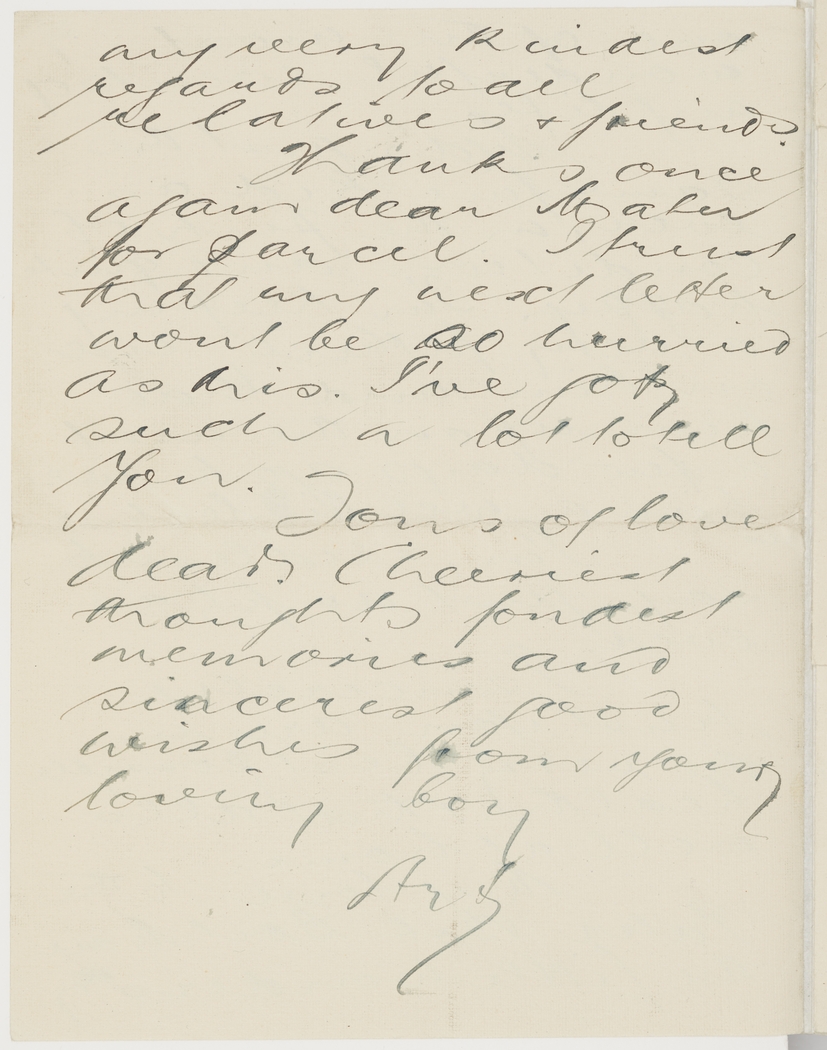 my very kindest
regards to all
relatives & friends.
Thanks once
again dear Mater
for parcel. I trust
that my next letter
wont be so hurried
as this. I've got
such a lot to tell
you.
Tons of love
dear. Cheeriest
thoughts fondest
memories and
sincerest good
wishes from your
loving boy